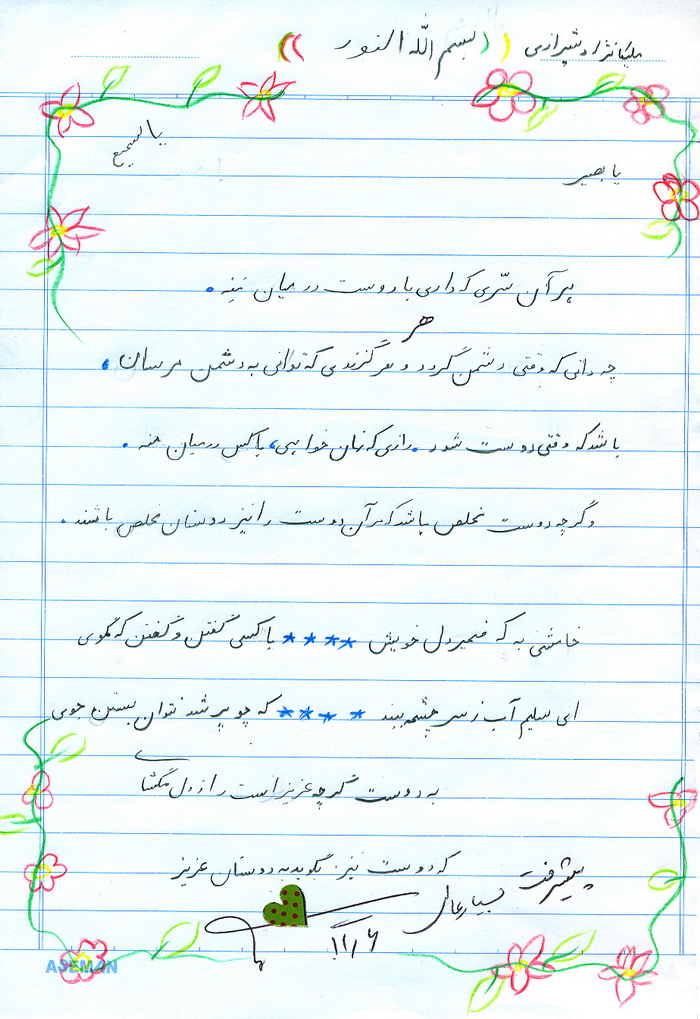 ملیکا نژاد شیرازی ( بسم الله النور )
یا بصیر
یا سمیع
هر آن سّری که داری با دوست در میان ننه.
هر
چه دانی که وقتی دشمن گردد و هر گزندی که توانی به دشمن مرسان،
باشد که وقتی دوست شود. رازی که نهان خواهی، با کس در میان منه.
وگرچه دوست مخلص باشد که مر آن دوست را نیز دوستان مخلص باشند.
خامشی به که ضمیر دل خویش **** با کسی گفتن و گفتن که مگوی
ای سلیم آب ز سر چشمه ببند **** که چو پر شد نتوان بستن جوی
به دوست گرچه عزیز است راز دل مگشای
که دوست نیز بگوید به دوستان عزیز
پیشرفت بسیار عالی
ASEMAN